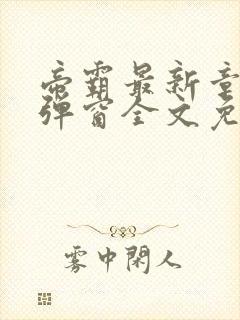 帝霸最新章
弹窗全文免
雾中闲人